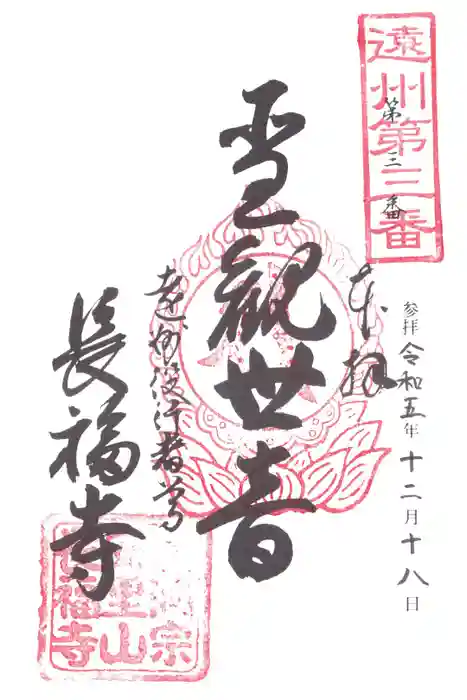 遠州第三番
第三番
参拝令和五年十二月十八日
奉拝
聖観世音
遠州役行者尊
長福寺
曹洞宗
安里山
長福寺